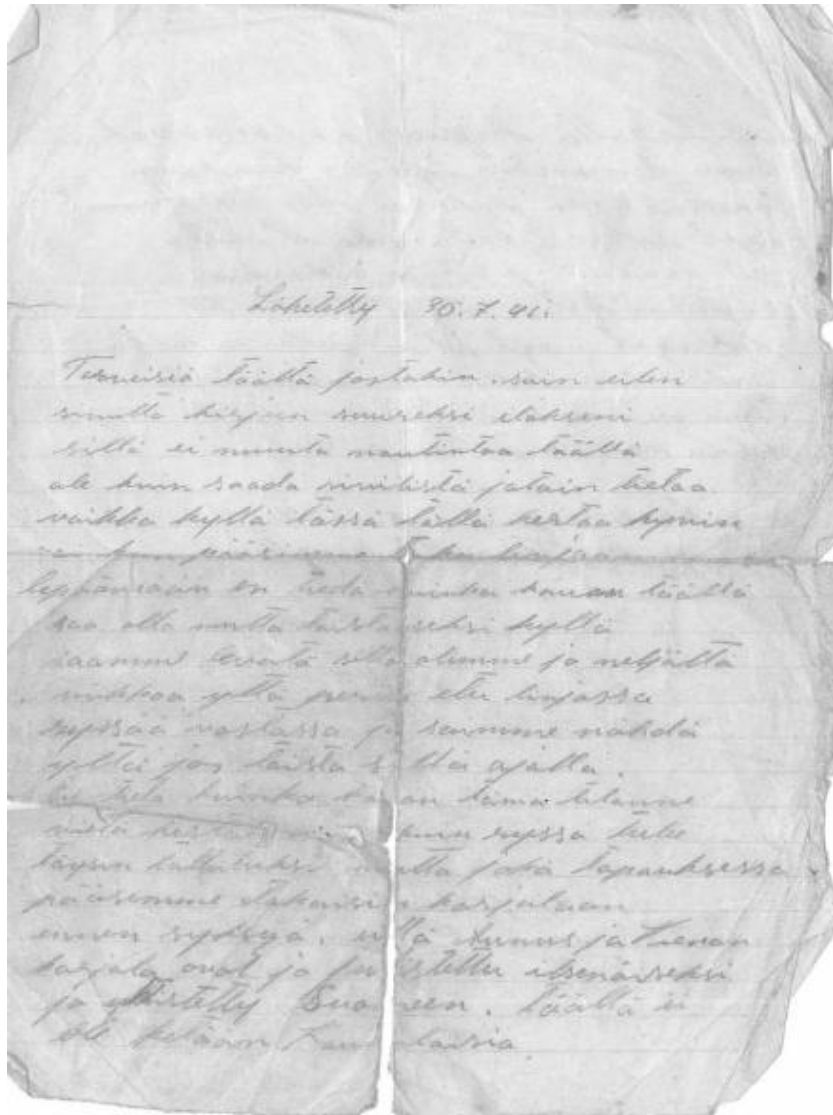 Lähetetty 30.7.41.
Terveisiä täältä jostakin. sain eilen
sinulta kirjeen suureksi ilokseni
sillä ei muuta nautintoa täällä
ole kuin saada siviilistä jotain tietoa.
vaikka kyllä tässä tällä kertaa hyvin
kun pääsimme
lepäämään en tiedä kuinka kauan täällä
saa olla mutta toistaiseksi kyllä
saamme levätä sillä olimme jo neljättä
viikkoa yhtä etu linjassa
ryssää vastassa ja saimme nähdä
yhtä jos toista sillä ajalla.
kuinka tämä tilanne
vielä kun ryssä
täysin mutta joka tapauksessa
pääsemme takaisin karjalaan
ennen syksyä. sillä Aunus ja Vienan
karjala ovat jo julistettu itsenäiseksi
ja yhdistetty Suomeen. täällä ei
ole ketään